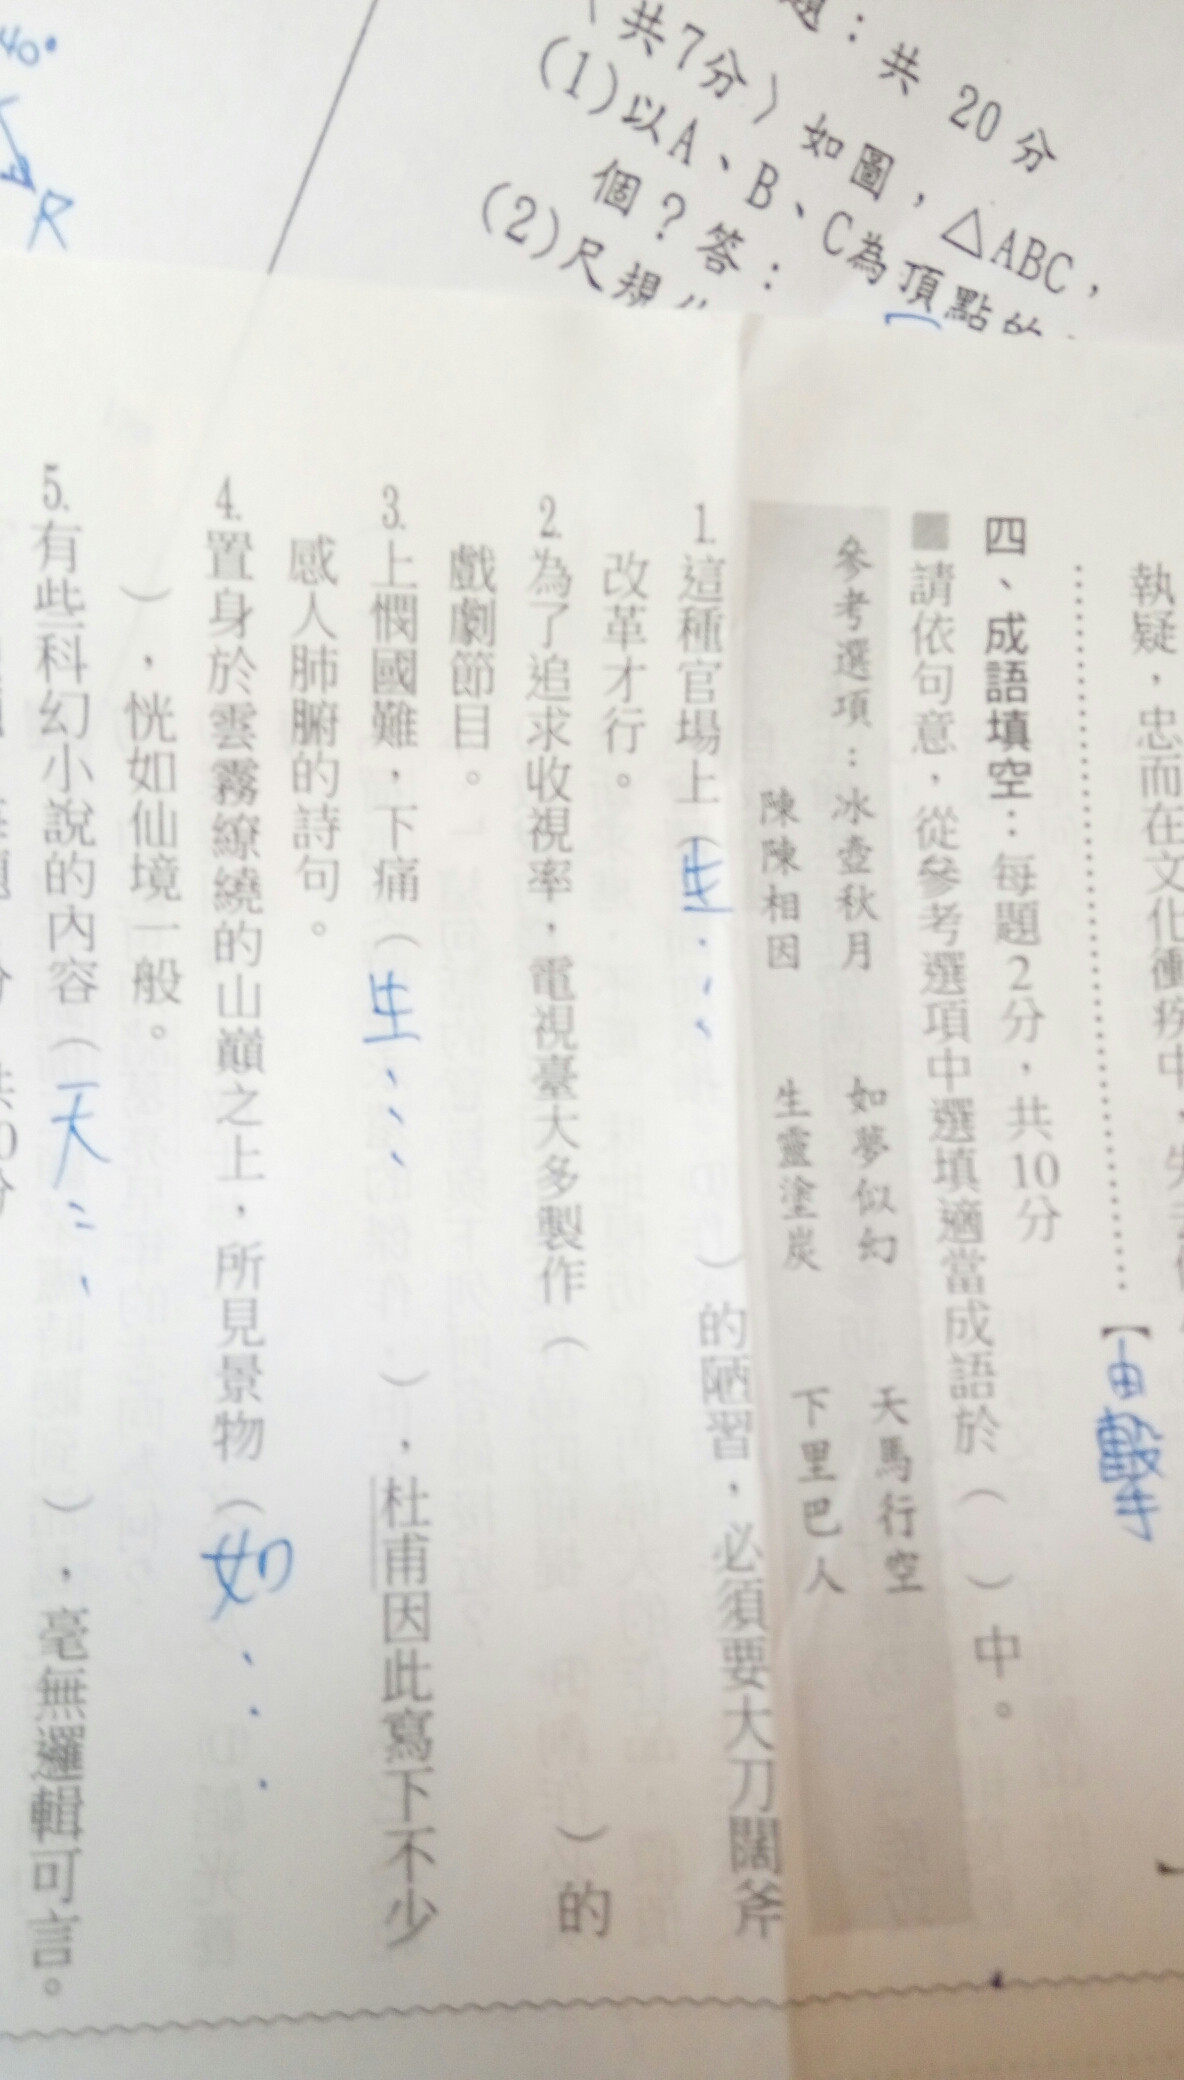 40°
R
題：共 20 分
（共7分）如圖，△ABC，
(1)以A、B、C為頂點的
個？答：
(2)尺規作
執疑，忠而在文化衝疾中，失去
【
四、成語填空：每題2分，共10分
■請依句意，從參考選項中選填適當成語於（　）中。
參考選項：冰壺秋月　如夢似幻　天馬行空
陳陳相因　生靈塗炭　下里巴人
1.這種官場上（　）的陋習，必須要大刀闊斧
改革才行。
2.為了追求收視率，電視臺大多製作（　）的
戲劇節目。
3.上憫國難，下痛（生、、、），杜甫因此寫下不少
感人肺腑的詩句。
4.置身於雲霧繚繞的山巔之上，所見景物（如、、、
），恍如仙境一般。
5.有些科幻小說的內容（天、、、），毫無邏輯可言。